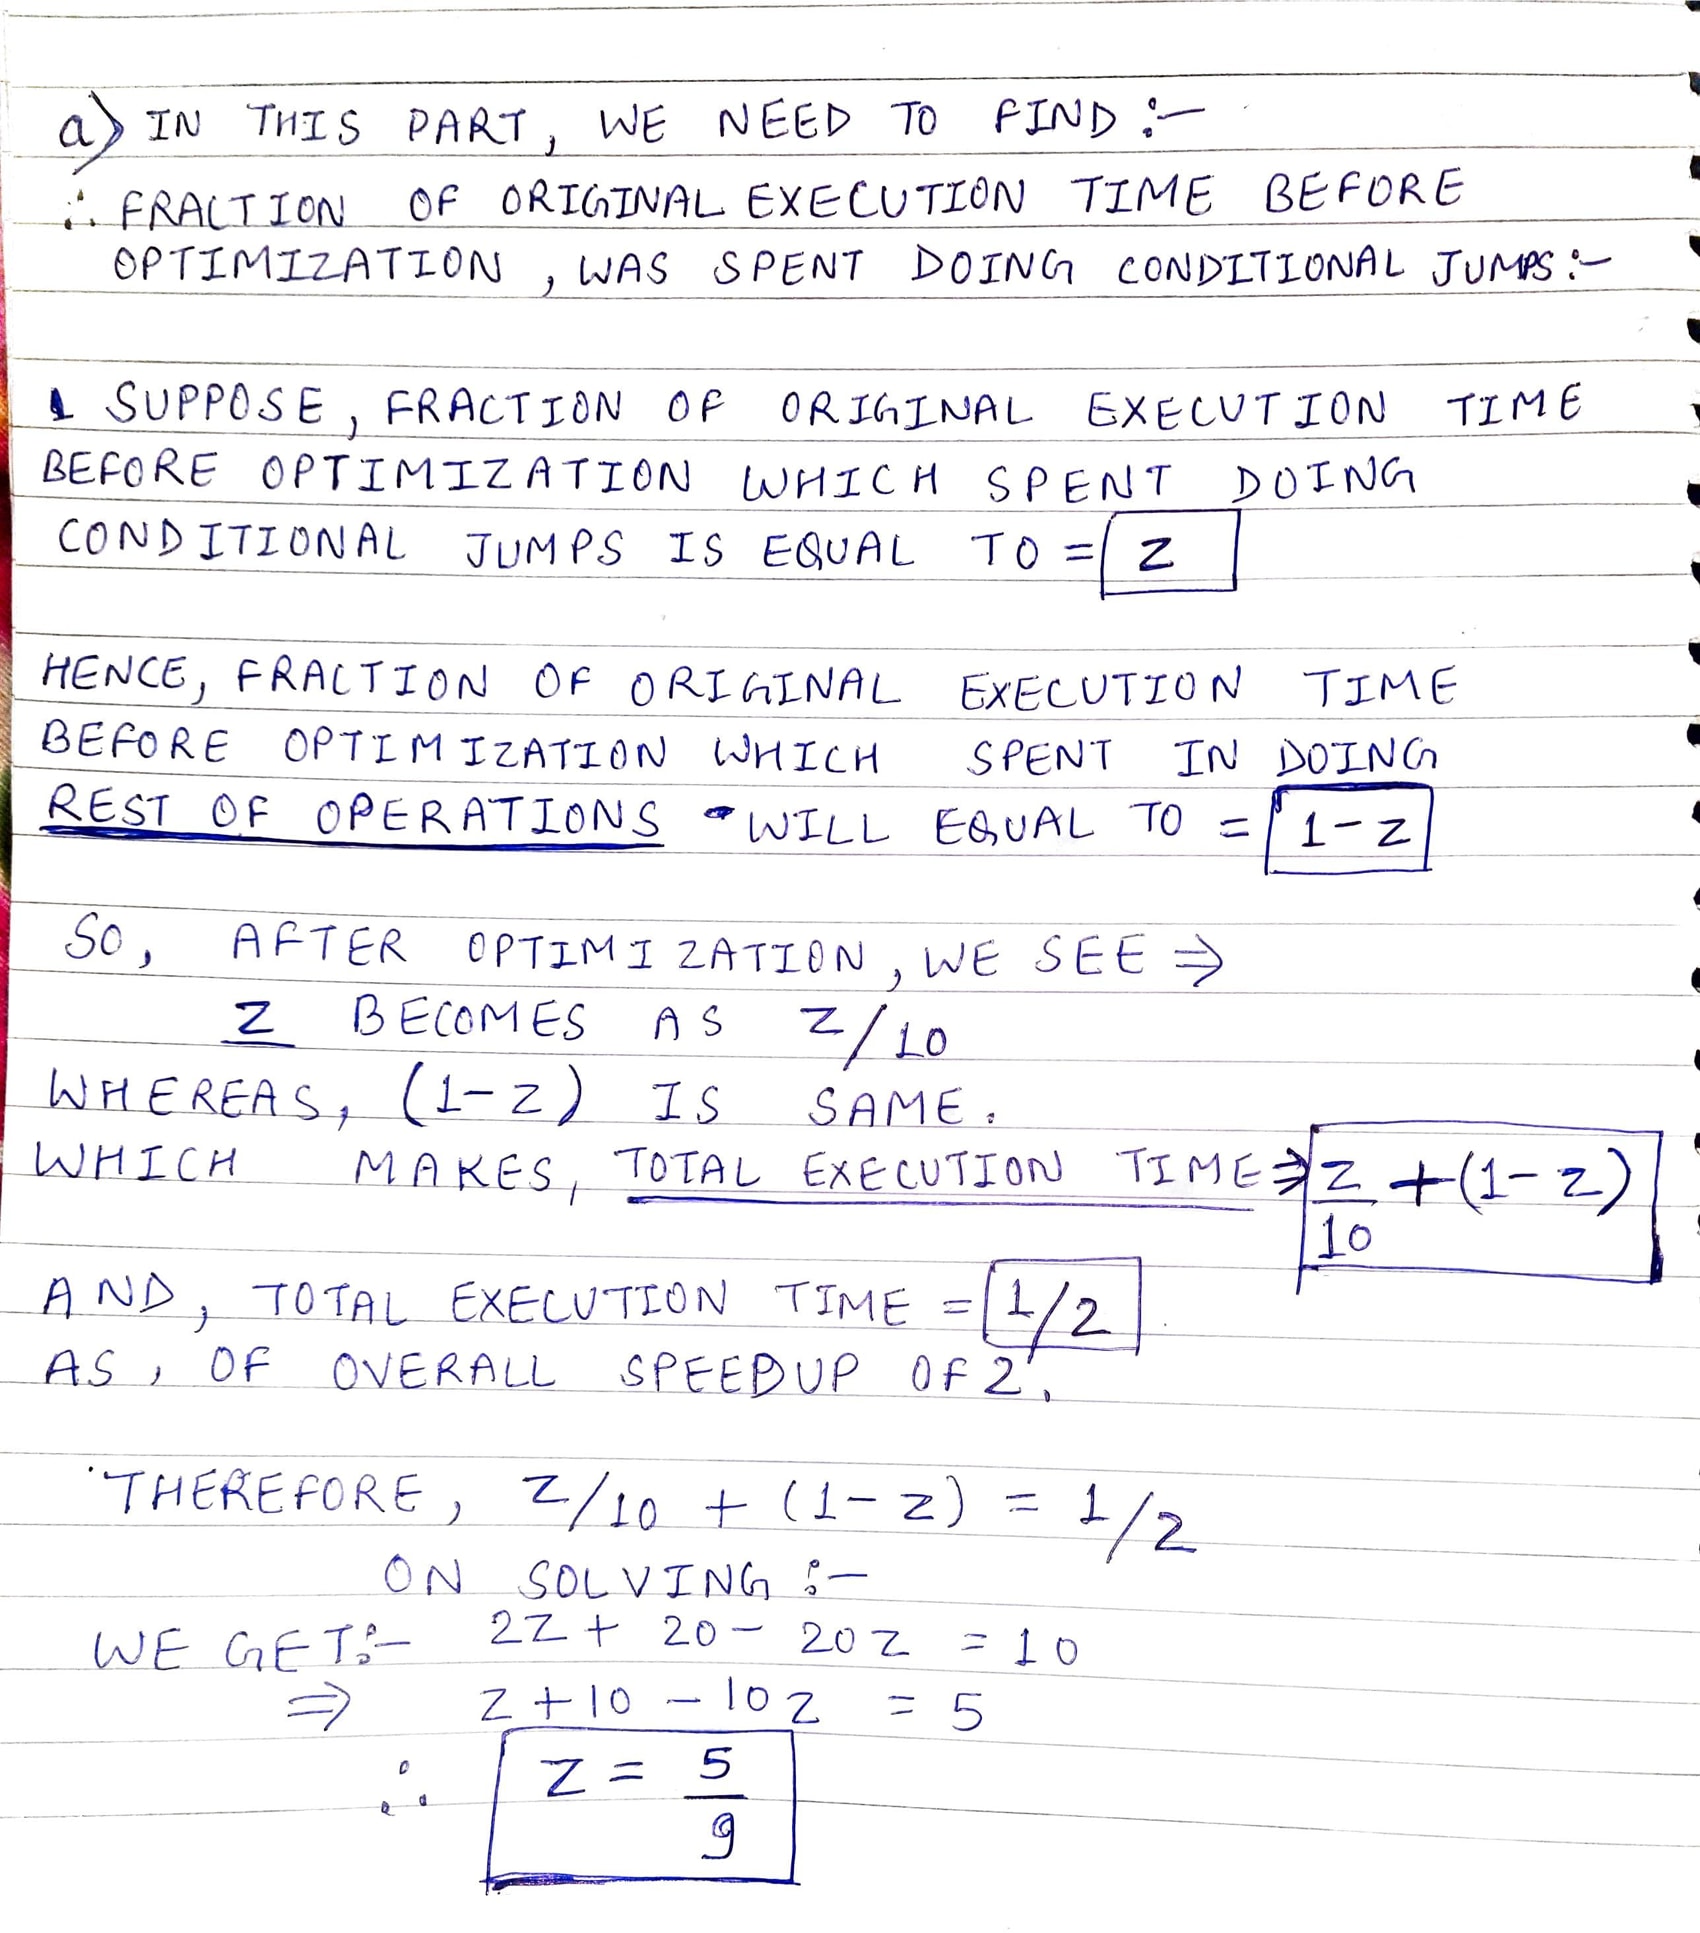 a) IN THIS PART, WE NEED TO FIND :-
∴ FRACTION OF ORIGINAL EXECUTION TIME BEFORE
OPTIMIZATION , WAS SPENT DOING CONDITIONAL JUMPS :-
SUPPOSE, FRACTION OF ORIGINAL EXECUTION TIME
BEFORE OPTIMIZATION WHICH SPENT DOING
CONDITIONAL JUMPS IS EQUAL TO = Z
HENCE, FRACTION OF ORIGINAL EXECUTION TIME
BEFORE OPTIMIZATION WHICH SPENT IN DOING
REST OF OPERATIONS WILL EQUAL TO = 1-Z
SO, AFTER OPTIMIZATION, WE SEE ⇒
Z BECOMES AS Z/10
WHEREAS, (1-Z) IS SAME.
WHICH MAKES, TOTAL EXECUTION TIME ⇒ Z/10 + (1-Z)
AND, TOTAL EXECUTION TIME = 1/2
AS, OF OVERALL SPEEDUP OF 2,
THEREFORE, Z/10 + (1-Z) = 1/2
ON SOLVING :-
WE GET:- 2Z + 20 - 20Z = 10
⇒ Z + 10 - 10Z = 5
∴ Z = 5/9